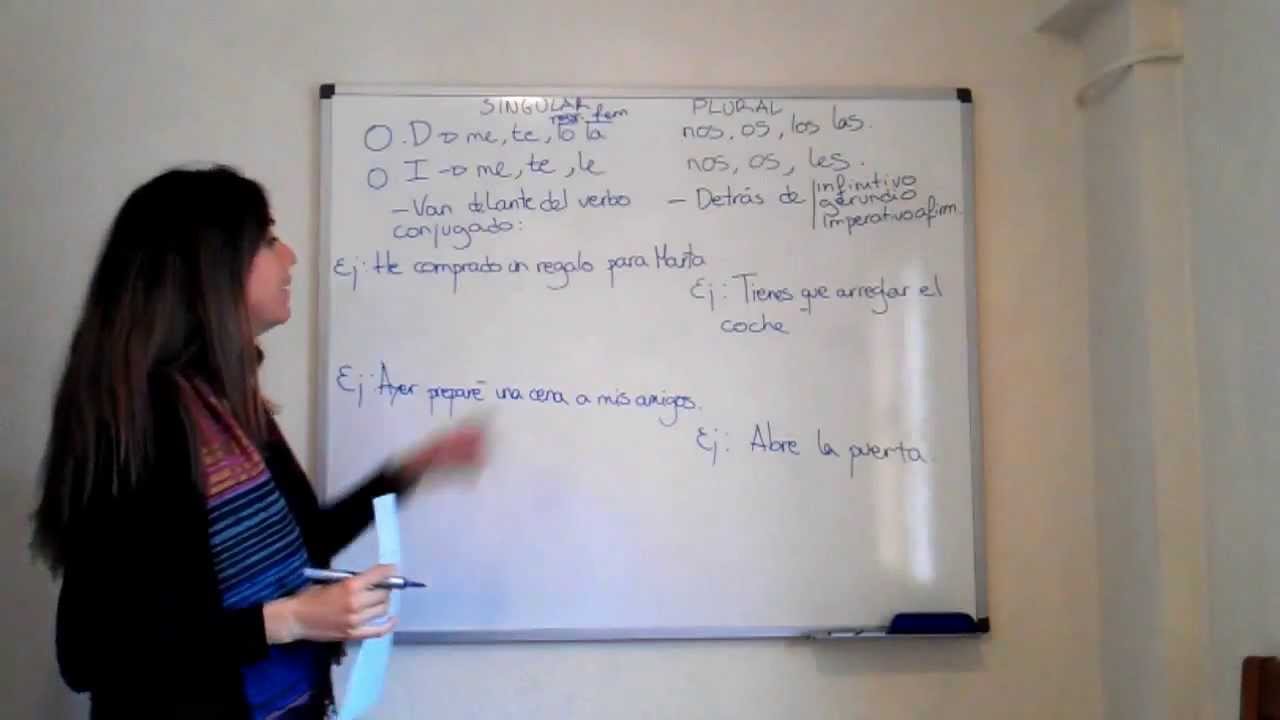 SINGULAR PLURAL
mas. fem
O. D → me, te, lo la nos, os, los las.
O I → me, te, le nos, os, les.
- Van delante del verbo - Detrás de infinitivo
conjugado: gerundio
imperativo afirm.
Ej: He comprado un regalo para Marta
Ej: Tienes que arreglar el
coche
Ej: Ayer preparé una cena a mis amigos.
Ej: Abre la puerta.